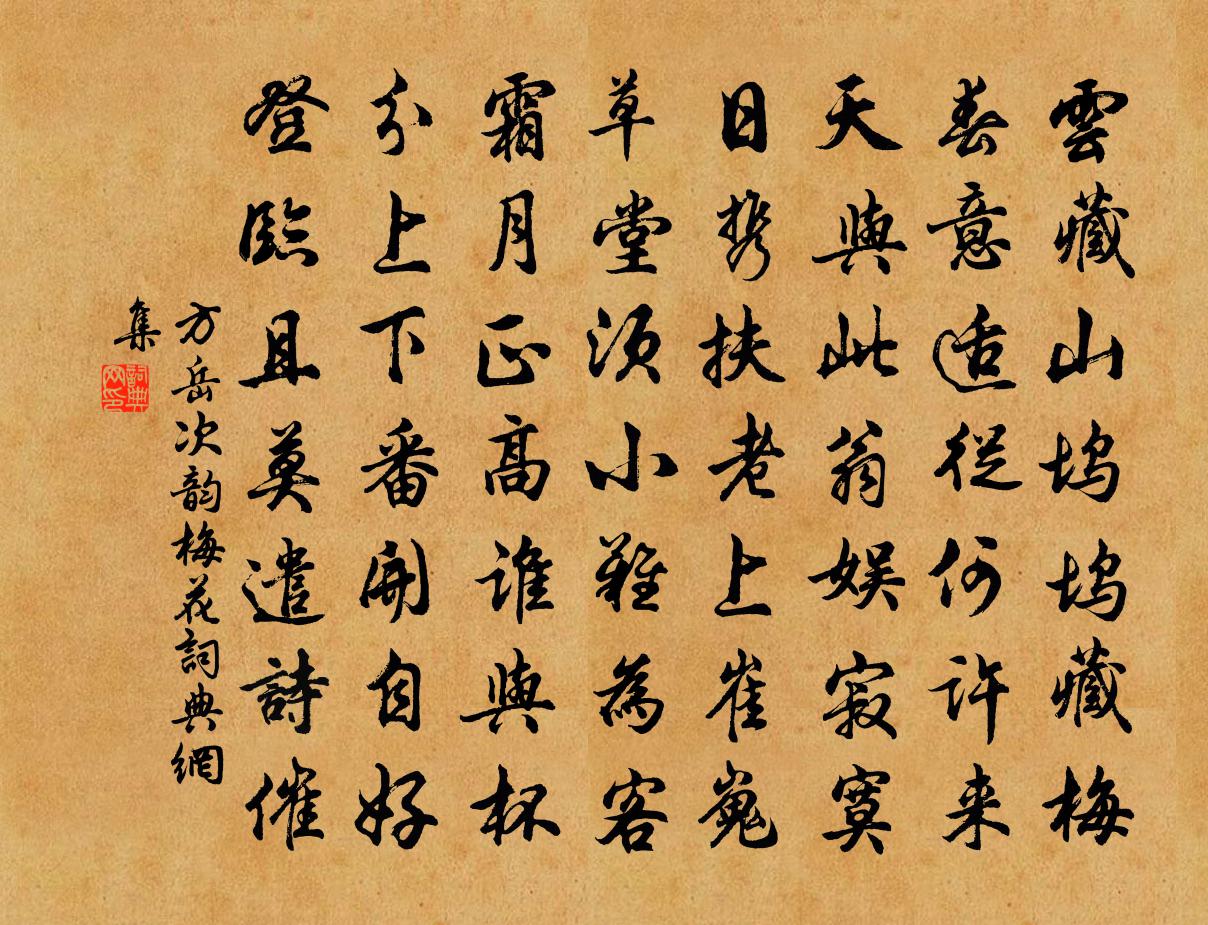 雲藏山塢塢藏梅
春意适從何許来
天與此翁娛寂寞
日携扶老上崔嵬
草堂須小難為客
霜月正高誰與杯
分上下番開自好
登臨且莫遣詩催
方岳次韵梅花詞典網
集
詞典
网印